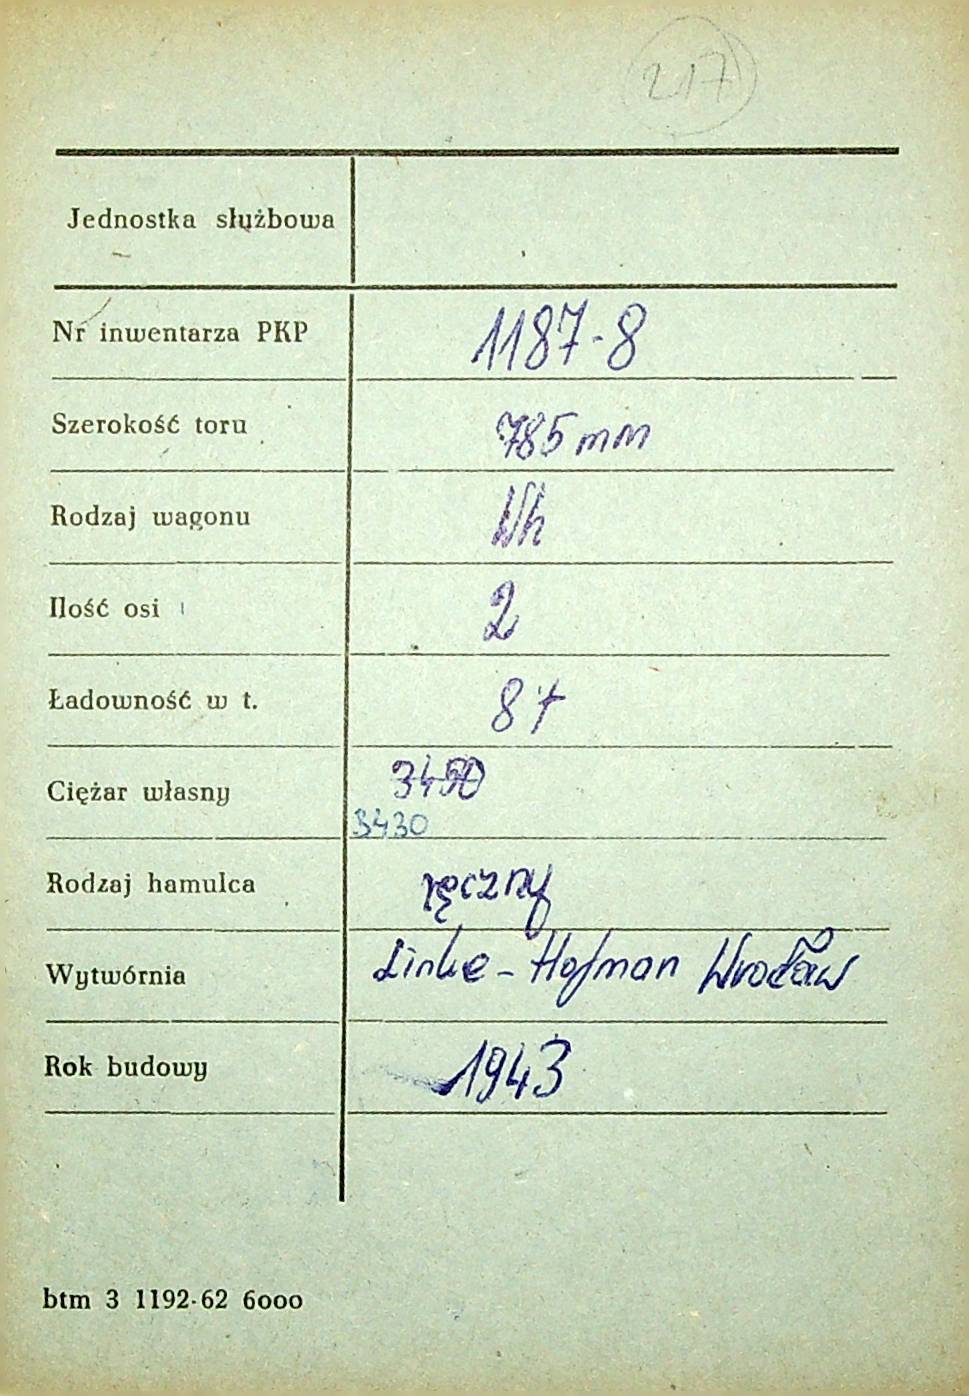 217
Jednostka służbowa
Nr inwentarza PKP 1187-8
Szerokość toru 785 mm
Rodzaj wagonu Wh
Ilość osi 2
Ładowność w t. 8 t
Ciężar własny 3450
3430
Rodzaj hamulca ręczny
Wytwórnia Linke - Hofman Wrocław
Rok budowy 1943
btm 3 1192-62 6000